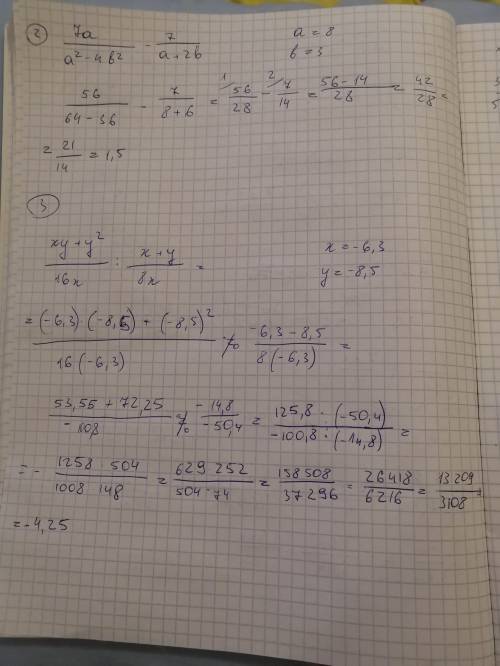 2) 7a/(a² - 4b²) - 7/(a+2b) a = 8
b = 3
56/(64 - 36) - 7/(8+6) = 56/28 - 7/14 = (56 - 14)/28 = 42/28 =
= 21/14 = 1,5
3
(xy + y²)/16x : (x + y)/8x = x = -6,3
y = -8,5
= ((-6,3) · (-8,5) + (-8,5)²)/(16(-6,3)) % (-6,3 - 8,5)/(8(-6,3)) =
(53,55 + 72,25)/ % (-14,8)/(-50,4) = (125,8 · (-50,4))/(-100,8 · (-14,8)) =
= - (1258 · 504)/(1008 · 148) = (629 · 252)/(504 · 74) = 158508/37296 = 26418/6216 = 13209/3108 =
= -4,25